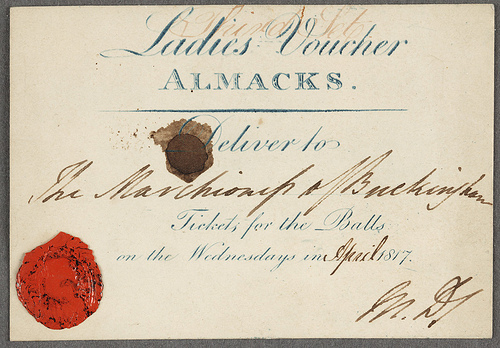 Ladies Voucher
ALMACKS.
Deliver to
The Marchioness of Buckingham
Tickets for the Balls
on the Wednesdays in April 1817.